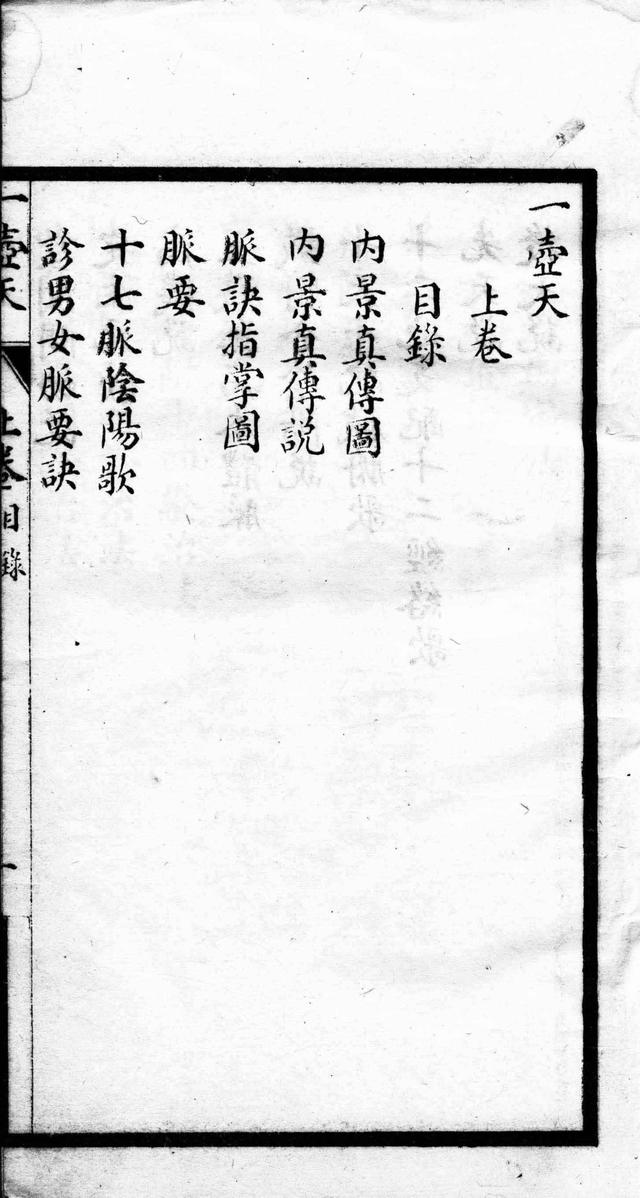 一壺天
上卷
目錄
內景真傳圖
內景真傳説
脈訣指掌圖
脈要
十七脈陰陽歌
診男女脈要訣
一壺天
上卷目錄
一